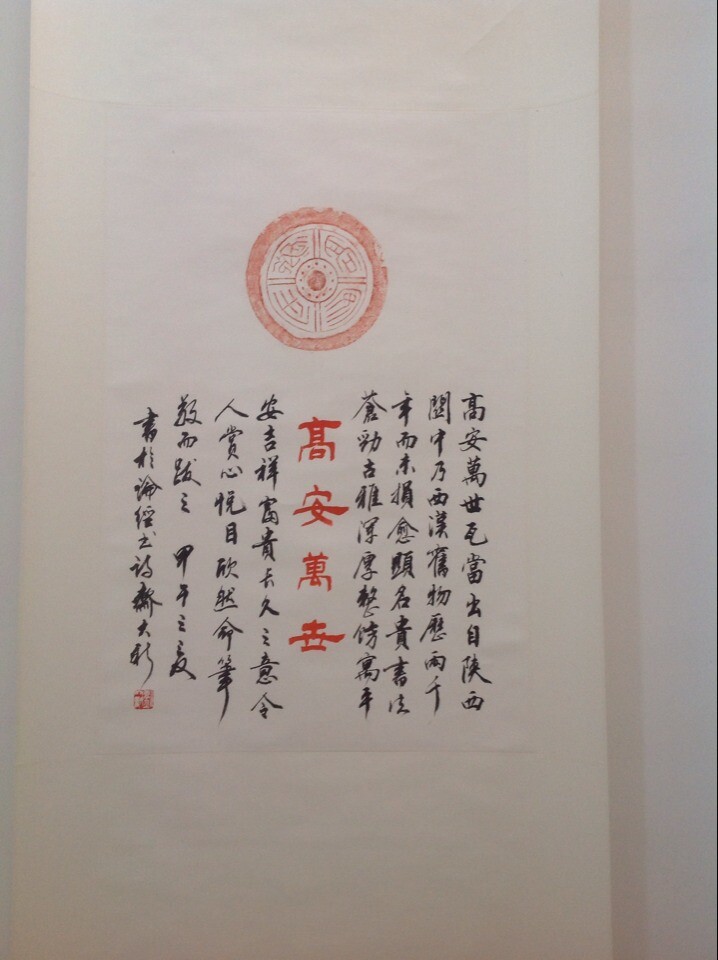 高安萬世瓦當出自陝西
關中乃西漢舊物歷兩千
年而未損愈顯名貴書法
蒼勁古雅渾厚整飭寓平
高安萬世
安吉祥富貴長久之意令
人賞心悅目欣然命筆
敬而跋之 甲午之夏
書於論經書詩齋大新